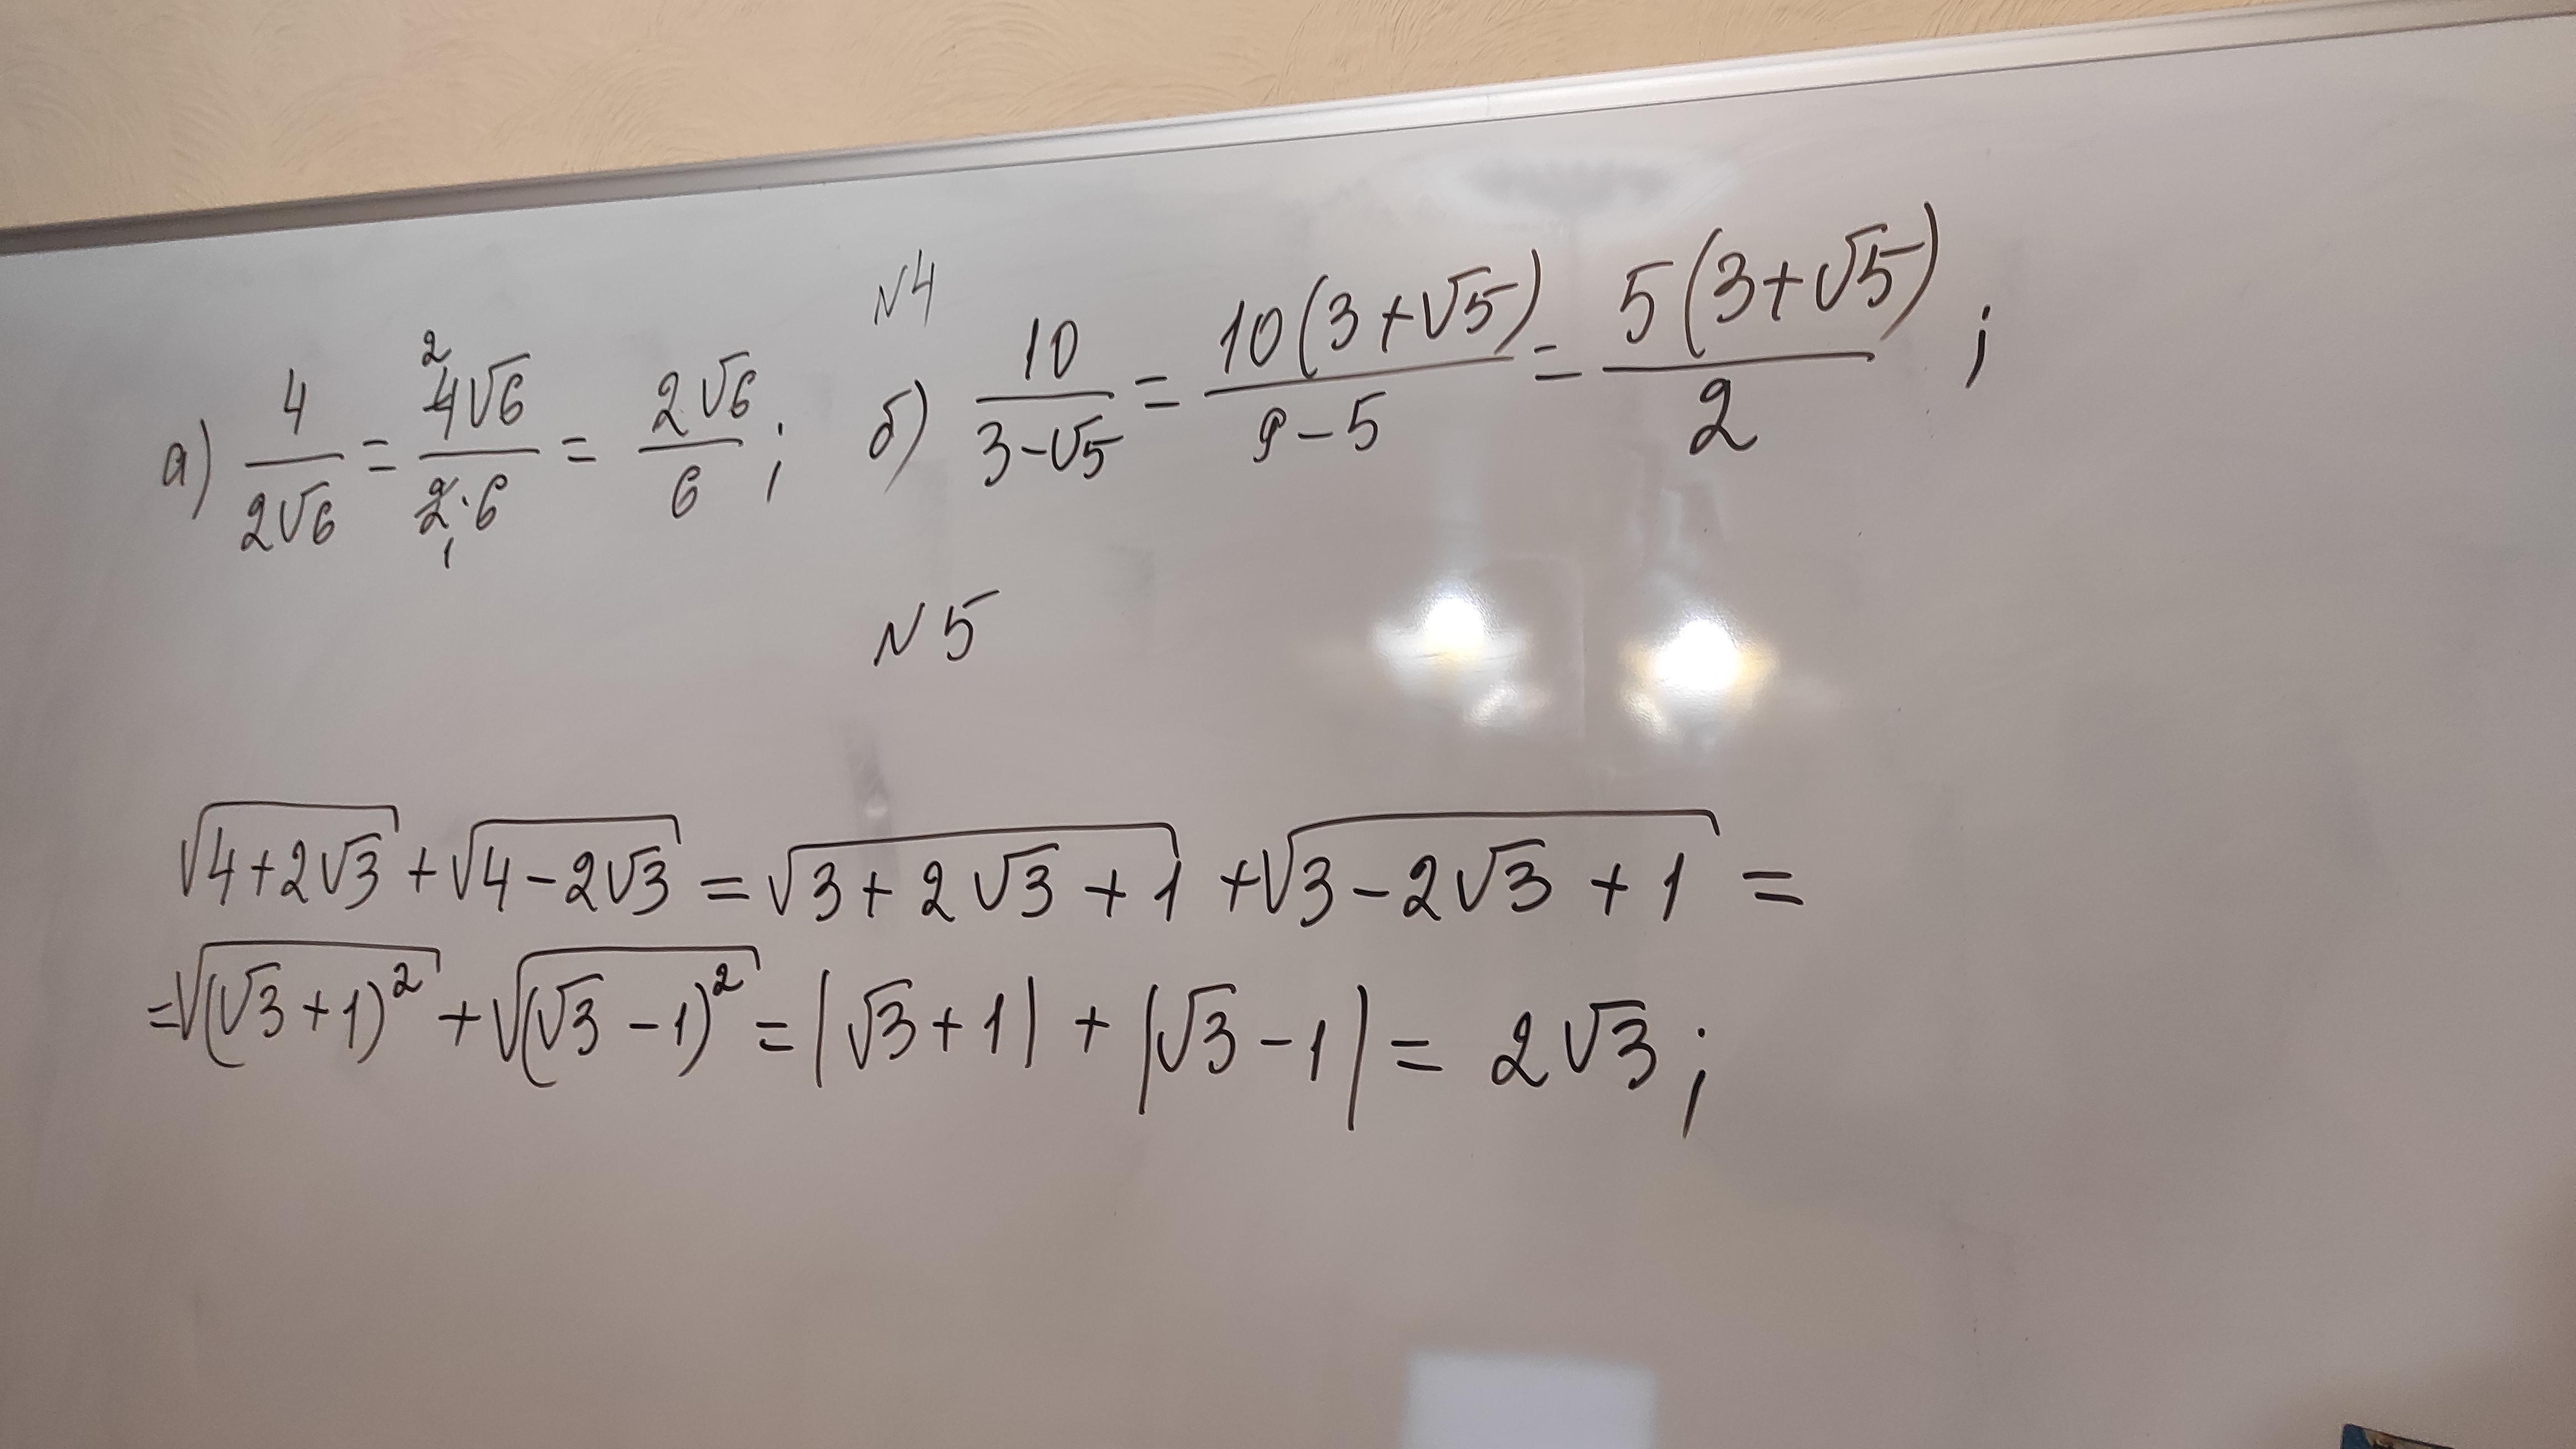 N4
а) 4/(2√6) = (4√6)/(2·6) = (2√6)/6 ; б) 10/(3-√5) = 10(3+√5)/(9-5) = 5(3+√5)/2 ;
2
1
N5
√(4+2√3) + √(4-2√3) = √(3+2√3+1) + √(3-2√3+1) =
= √((√3+1)²) + √((√3-1)²) = |√3+1| + |√3-1| = 2√3 ;